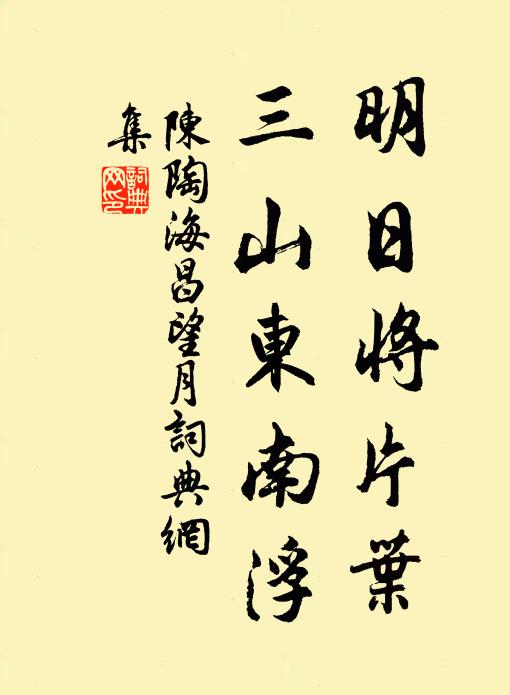 明日將片葉
三山東南浮
陳陶海昌望月詞典網
集
詞典
网印